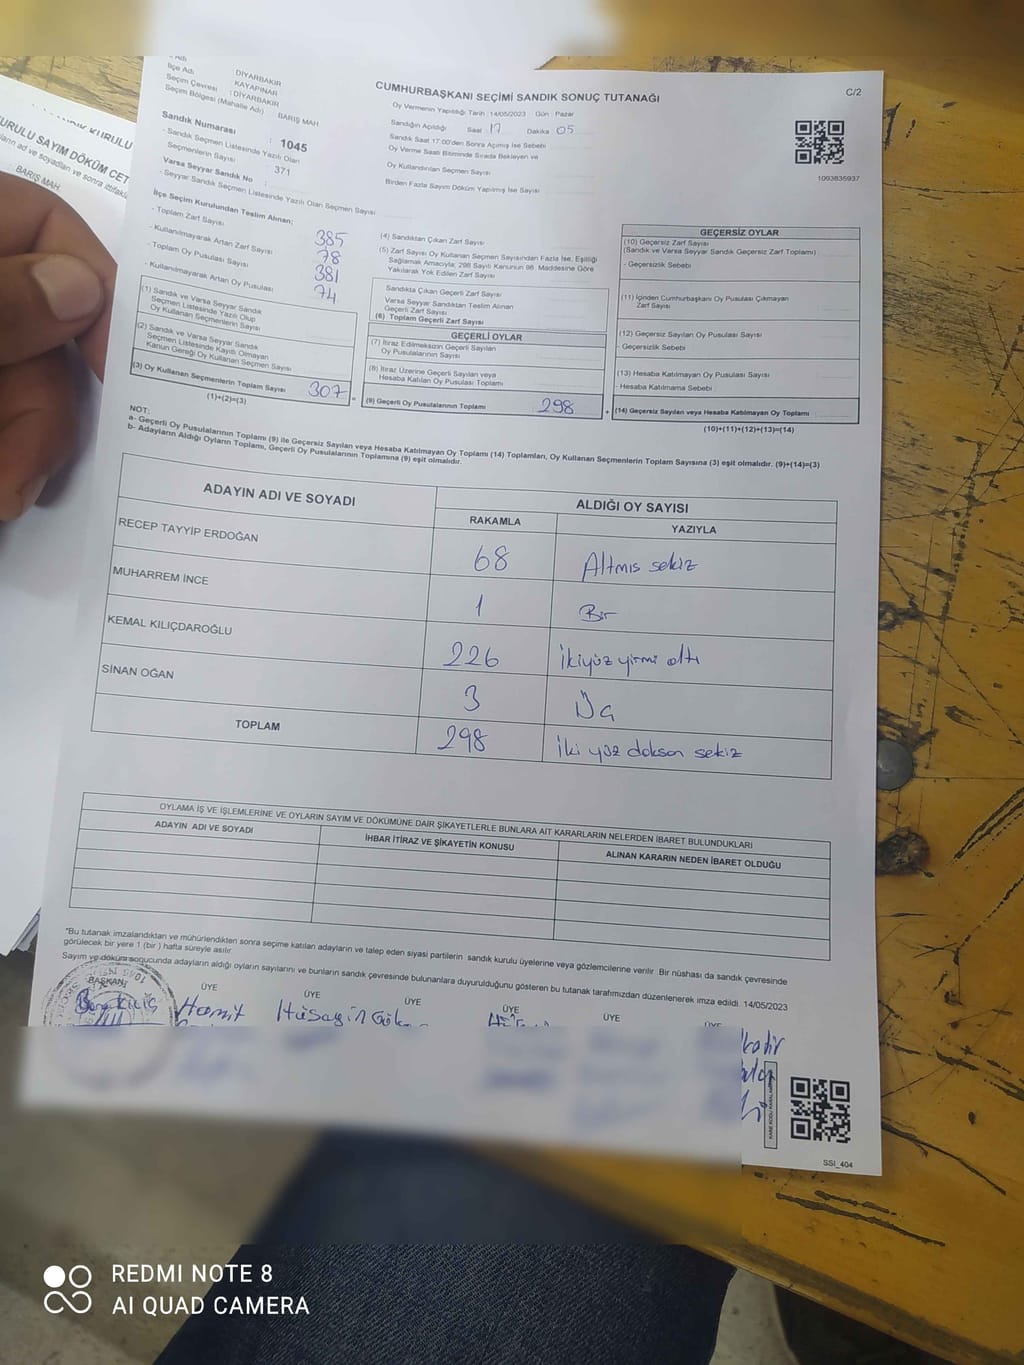 İlçe Adı : DİYARBAKIR
Seçim Çevresi : KAYAPINAR
Seçim Bölgesi (Mahalle Adı) : DİYARBAKIR
BARIŞ MAH
Sandık Numarası : 1045
- Sandık Seçmen Listesinde Yazılı Olan
Seçmenlerin Sayısı : 371
Varsa Seyyar Sandık No :
- Seyyar Sandık Seçmen Listesinde Yazılı Olan Seçmen Sayısı
CUMHURBAŞKANI SEÇİMİ SANDIK SONUÇ TUTANAĞI
C/2
Oy Vermenin Yapıldığı Tarih :14/05/2023 Gün : Pazar
Sandığın Açıldığı Saat 17 Dakika 05
Sandık Saat 17:00'den Sonra Açılmış İse Sebebi
Oy Verme Saati Bitiminde Sırada Bekleyen ve
Oy Kullandırılan Seçmen Sayısı
Birden Fazla Sayım Döküm Yapılmış İse Sayısı
1093835937
İlçe Seçim Kurulundan Teslim Alınan;
- Toplam Zarf Sayısı 385
- Kullanılmayarak Artan Zarf Sayısı 78
- Toplam Oy Pusulası Sayısı 381
- Kullanılmayarak Artan Oy Pusulası 74
(1) Sandık ve Varsa Seyyar Sandık
Seçmen Listesinde Yazılı Olup
Oy Kullanan Seçmenlerin Sayısı
(2) Sandık ve Varsa Seyyar Sandık
Seçmen Listesinde Kayıtlı Olmayan
Kanun Gereği Oy Kullanan Seçmen Sayısı
(3) Oy Kullanan Seçmenlerin Toplam Sayısı 307 =
(1)+(2)=(3)
(4) Sandıktan Çıkan Zarf Sayısı
(5) Zarf Sayısı Oy Kullanan Seçmen Sayısından Fazla İse, Eşitliği
Sağlamak Amacıyla, 298 Sayılı Kanunun 98. Maddesine Göre
Yakılarak Yok Edilen Zarf Sayısı
Sandıkta Çıkan Geçerli Zarf Sayısı
Varsa Seyyar Sandıktan Teslim Alınan
Geçerli Zarf Sayısı
(6) Toplam Geçerli Zarf Sayısı
GEÇERLİ OYLAR
(7) İtiraz Edilmeksizin Geçerli Sayılan
Oy Pusulalarının Sayısı
(8) İtiraz Üzerine Geçerli Sayılan veya
Hesaba Katılan Oy Pusulası Toplamı
(9) Geçerli Oy Pusulalarının Toplamı 298 +
GEÇERSİZ OYLAR
(10) Geçersiz Zarf Sayısı
(Sandık ve Varsa Seyyar Sandık Geçersiz Zarf Toplamı)
- Geçersizlik Sebebi
(11) İçinden Cumhurbaşkanı Oy Pusulası Çıkmayan
Zarf Sayısı
(12) Geçersiz Sayılan Oy Pusulası Sayısı
- Geçersizlik Sebebi
(13) Hesaba Katılmayan Oy Pusulası Sayısı
- Hesaba Katılmama Sebebi
(14) Geçersiz Sayılan veya Hesaba Katılmayan Oy Toplamı
(10)+(11)+(12)+(13)=(14)
NOT:
a- Geçerli Oy Pusulalarının Toplamı (9) ile Geçersiz Sayılan veya Hesaba Katılmayan Oy Toplamı (14) Toplamları, Oy Kullanan Seçmenlerin Toplam Sayısına (3) eşit olmalıdır. (9)+(14)=(3)
b- Adayların Aldığı Oyların Toplamı, Geçerli Oy Pusulalarının Toplamına (9) eşit olmalıdır.
ADAYIN ADI VE SOYADI ALDIĞI OY SAYISI
RAKAMLA YAZIYLA
RECEP TAYYİP ERDOĞAN 68 Altmıs sekiz
MUHARREM İNCE 1 Bir
KEMAL KILIÇDAROĞLU 226 İkiyüz yirmi altı
SİNAN OĞAN 3 Üç
TOPLAM 298 İki yüz doksan sekiz
OYLAMA İŞ VE İŞLEMLERİNE VE OYLARIN SAYIM VE DÖKÜMÜNE DAİR ŞİKAYETLERLE BUNLARA AİT KARARLARIN NELERDEN İBARET BULUNDUKLARI
ADAYIN ADI VE SOYADI İHBAR İTİRAZ VE ŞİKAYETİN KONUSU ALINAN KARARIN NEDEN İBARET OLDUĞU
*Bu tutanak imzalandıktan ve mühürlendikten sonra seçime katılan adayların ve talep eden siyasi partilerin sandık kurulu üyelerine veya gözlemcilerine verilir. Bir nüshası da sandık çevresinde
görülecek bir yere 1 (bir ) hafta süreyle asılır.
Sayım ve döküm sonucunda adayların aldığı oyların sayılarını ve bunların sandık çevresinde bulunanlara duyurulduğunu gösteren bu tutanak tarafımızdan düzenlenerek imza edildi. 14/05/2023
BAŞKAN ÜYE ÜYE ÜYE ÜYE ÜYE ÜYE
Hamit Hüseyin
SSİ_404
BARIŞ MAH.
REDMI NOTE 8
AI QUAD CAMERA